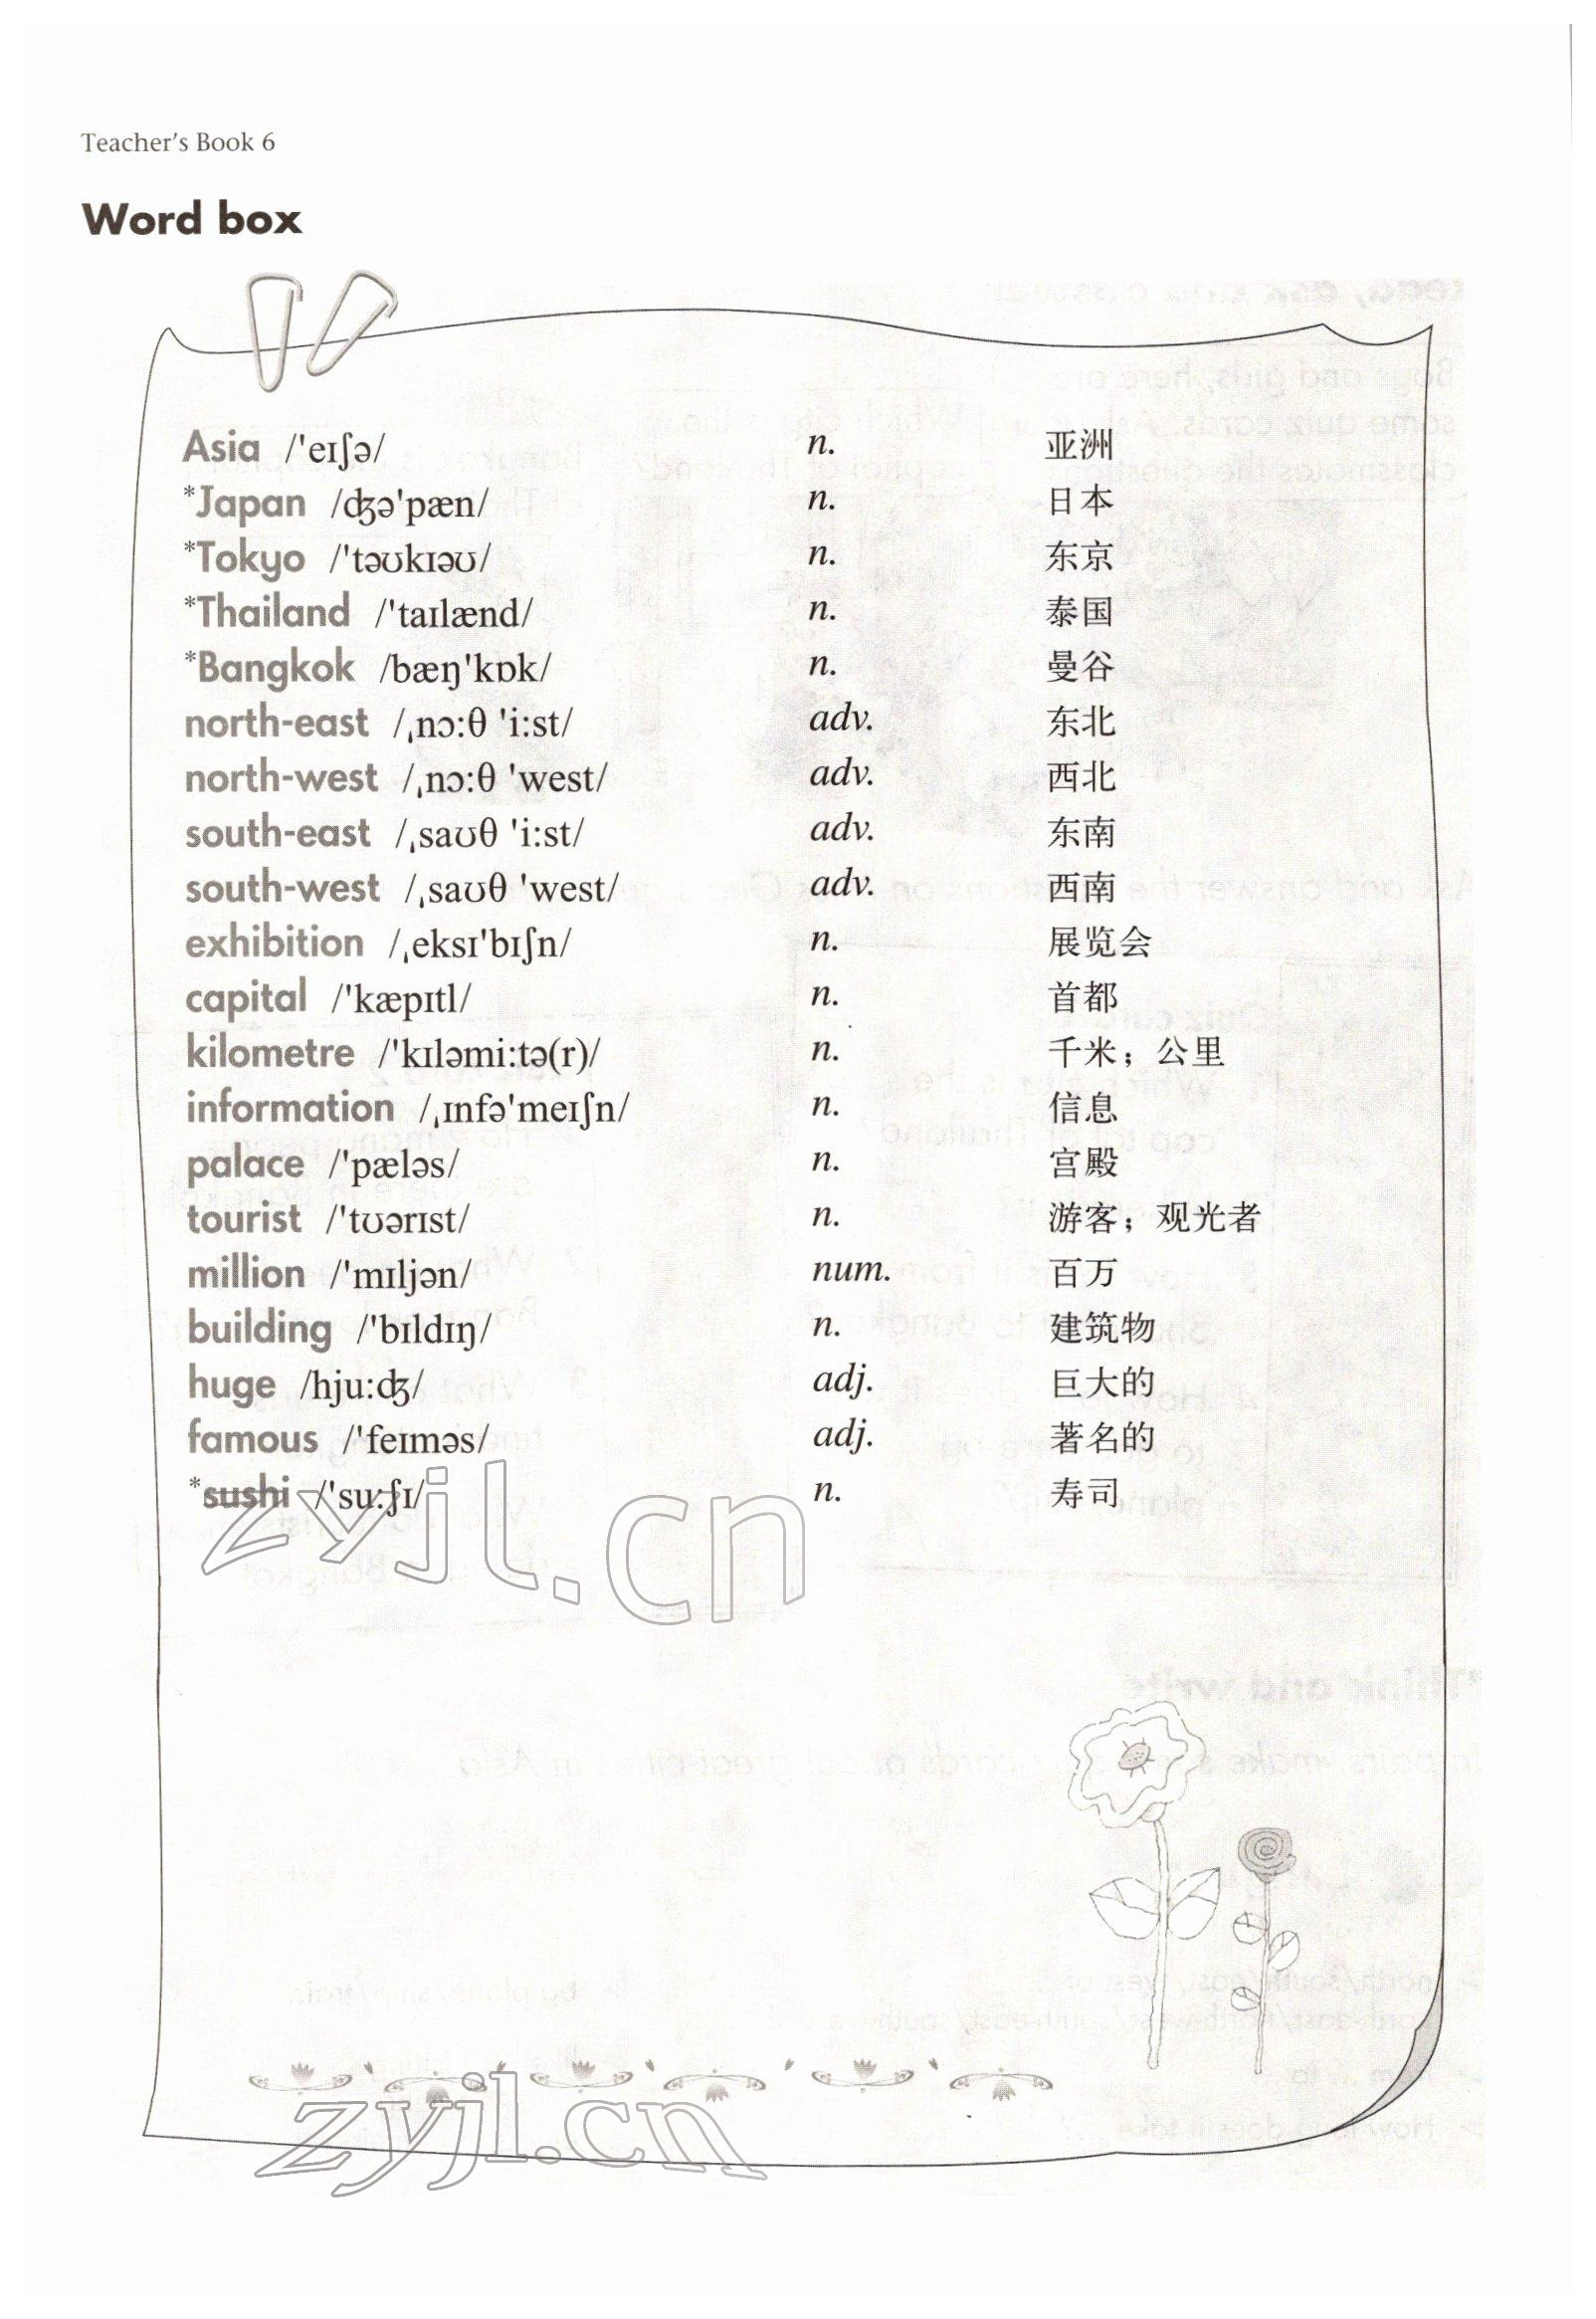 Teacher's Book 6
Word box
Asia /'eɪʃə/ n. 亚洲
*Japan /ʤə'pæn/ n. 日本
*Tokyo /'təʊkɪəʊ/ n. 东京
*Thailand /'taɪlænd/ n. 泰国
*Bangkok /bæŋ'kɒk/ n. 曼谷
north-east /ˌnɔ:θ 'i:st/ adv. 东北
north-west /ˌnɔ:θ 'west/ adv. 西北
south-east /ˌsaʊθ 'i:st/ adv. 东南
south-west /ˌsaʊθ 'west/ adv. 西南
exhibition /ˌeksɪ'bɪʃn/ n. 展览会
capital /'kæpɪtl/ n. 首都
kilometre /'kɪləmi:tə(r)/ n. 千米；公里
information /ˌɪnfə'meɪʃn/ n. 信息
palace /'pæləs/ n. 宫殿
tourist /'tʊərɪst/ n. 游客；观光者
million /'mɪljən/ num. 百万
building /'bɪldɪŋ/ n. 建筑物
huge /hju:ʤ/ adj. 巨大的
famous /'feɪməs/ adj. 著名的
*sushi /'su:ʃɪ/ n. 寿司
zyjl.cn
zyjl.cn